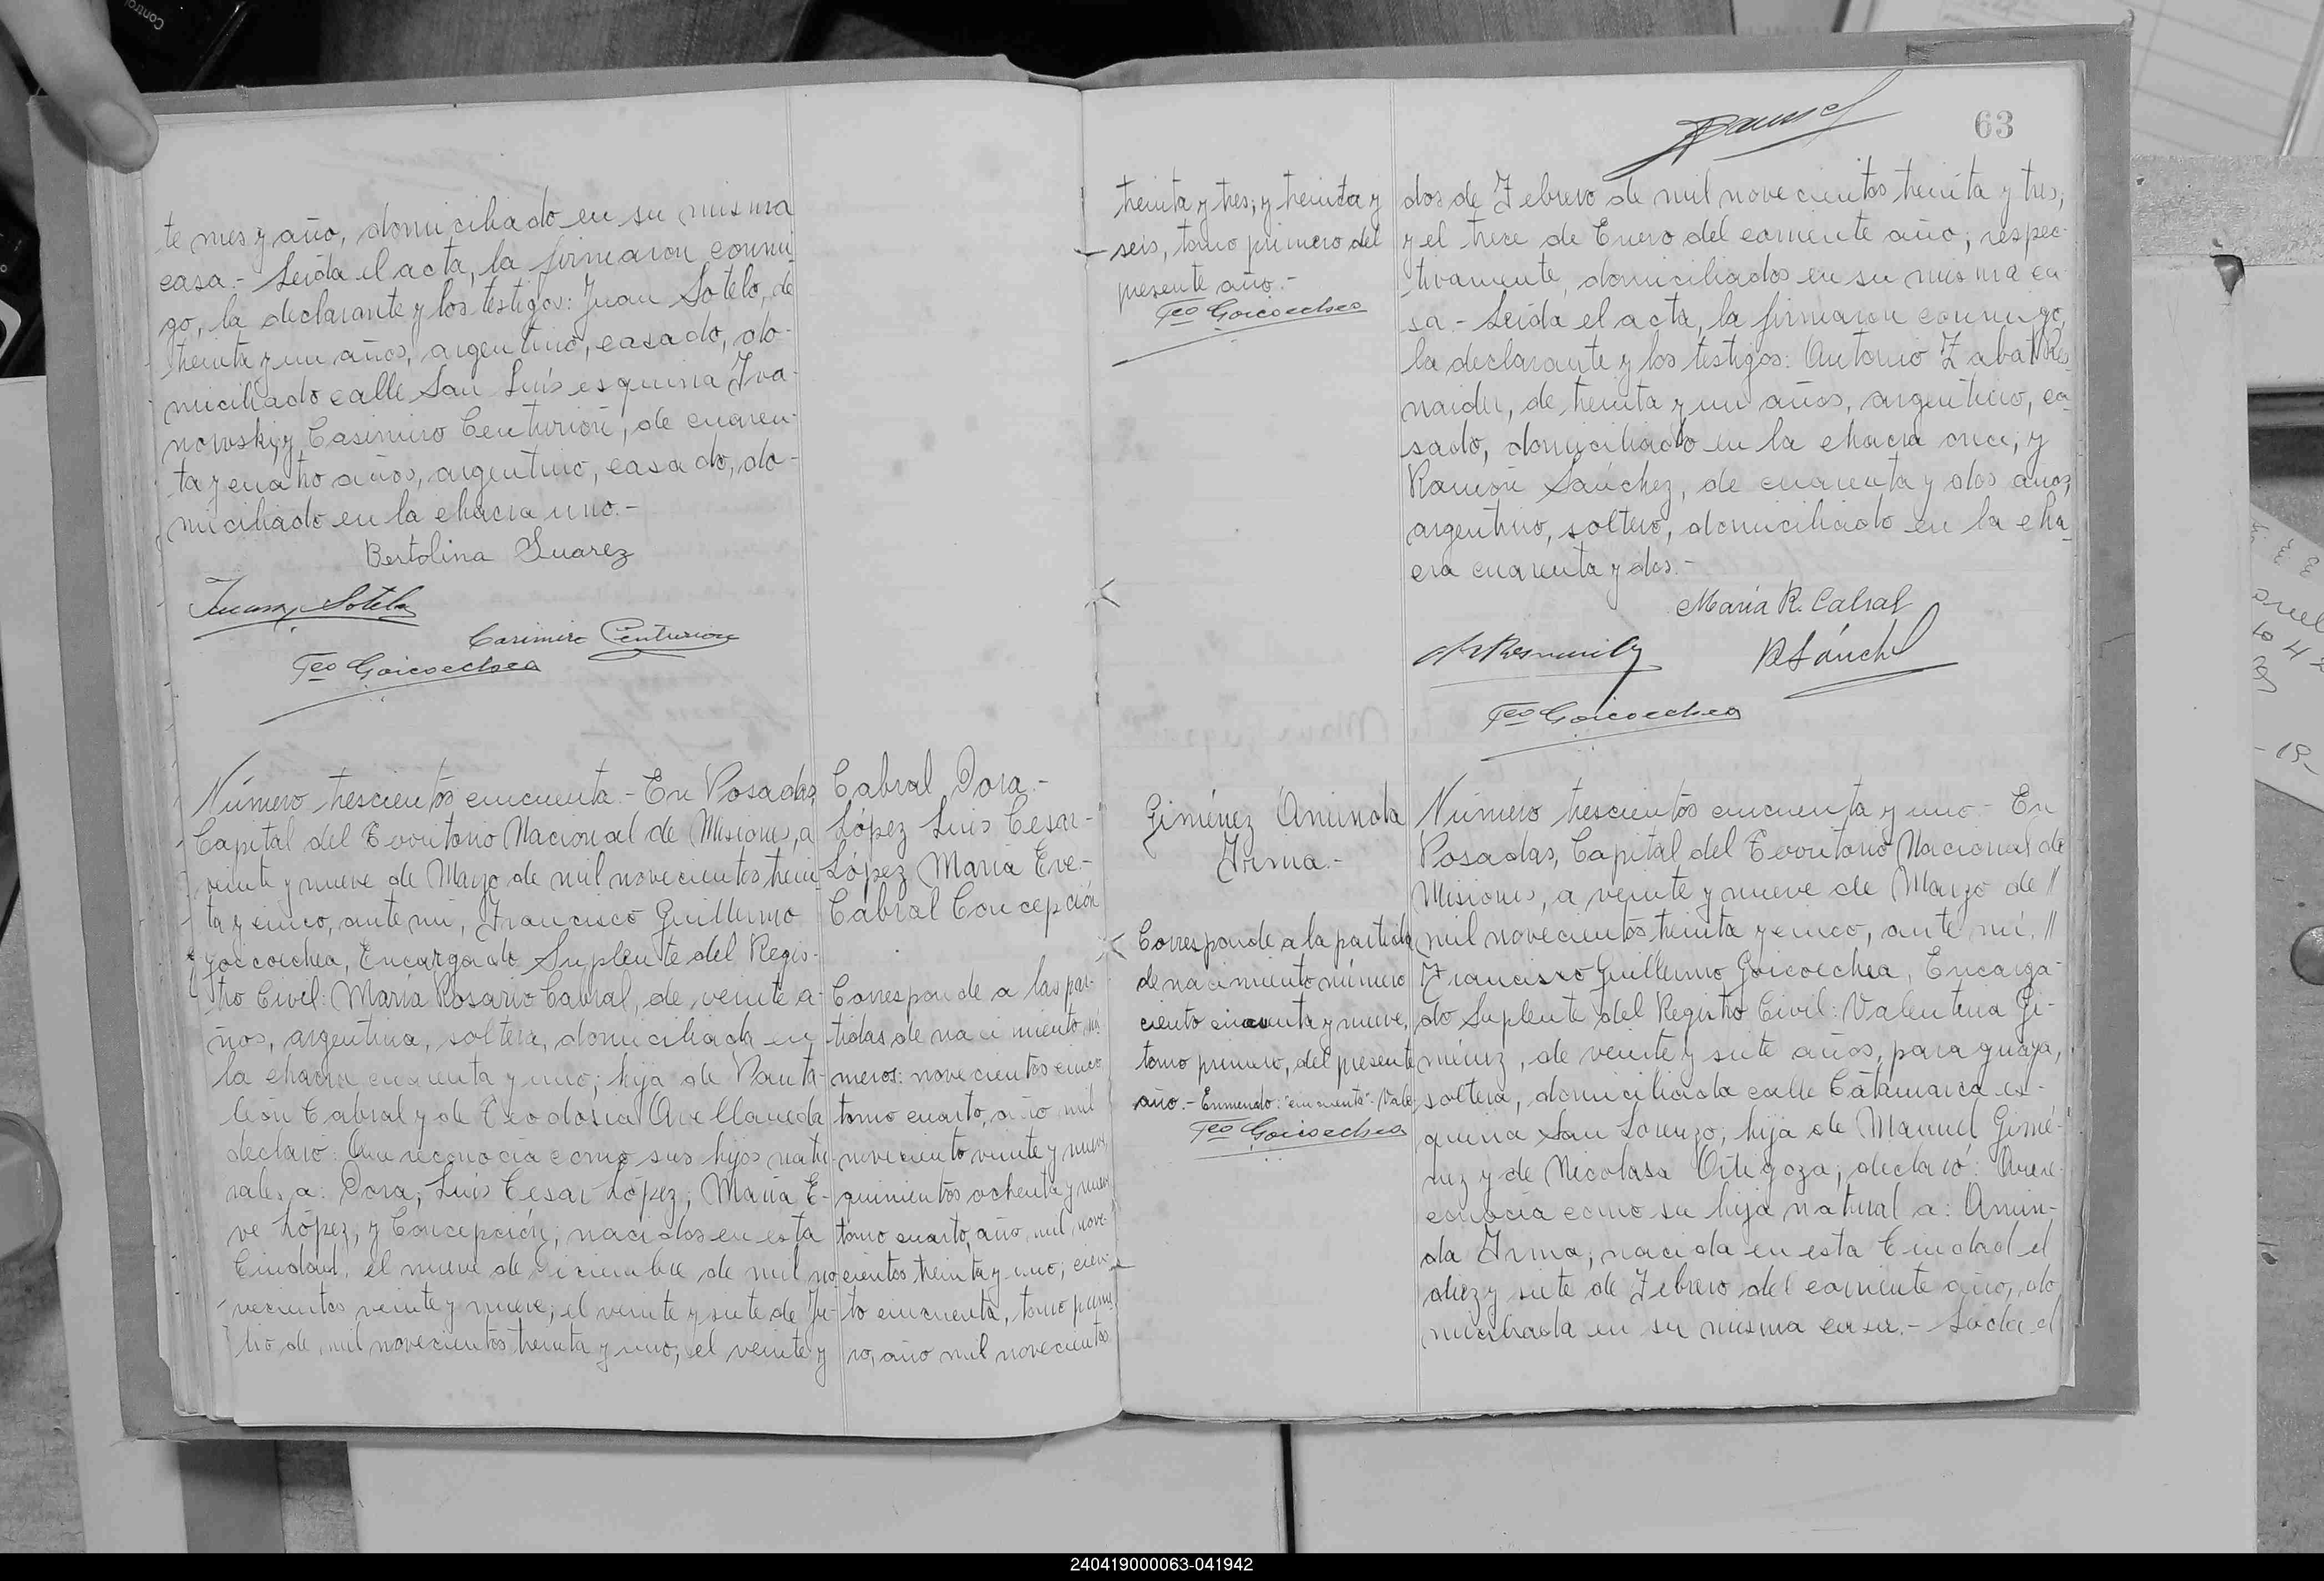 te mes y año, domiciliado en su misma
casa.- Leída el acta, la firmaron conmi-
go, la declarante y los testigos: Juan Sotelo, de
treinta y un años, argentino, casado, do-
miciliado calle San Luís esquina Iva-
nowsky; y Casimiro Centurión, de cuaren-
ta y cuatro años, argentino, casado, do-
miciliado en la chacra uno.-
Bertolina Suarez
Juan Sotelo
Casimiro Centurion
Fco Goicoechea
Número trescientos cincuenta.- En Posadas,
Capital del Territorio Nacional de Misiones, a
veinte y nueve de Marzo de mil novecientos trein-
ta y cinco, ante mí, Francisco Guillermo
Goicoechea, Encargado Suplente del Regis-
tro Civil: María Rosario Cabral, de veinte a-
ños, argentina, soltera, domiciliada en
la chacra cuarenta y uno; hija de Panta-
león Cabral y de Teodosia Avellaneda
declaró: Que reconocía como sus hijos natu-
rales a: Dora; Luis Cesar López; María E-
ve López; y Concepción; nacidos en esta
Ciudad, el nueve de Diciembre de mil no-
vecientos veinte y nueve; el veinte y siete de Ju-
lio de mil novecientos treinta y uno; el veinte y
Cabral Dora.-
López Luis Cesar-
López María Eve.-
Cabral Concepción
Corresponde a las par-
tidas de nacimiento nú-
meros: novecientos cinco,
tomo cuarto, año mil
novecientos veinte y nueve,
quinientos ochenta y nueve
tomo cuarto, año mil nove-
cientos treinta y uno; cien-
to cincuenta, tomo prime-
ro, año mil novecientos
63
treinta y tres; y treinta y
seis, tomo primero del
presente año.-
Fco Goicoechea
dos de Febrero de mil novecientos treinta y tres;
y el trece de Enero del corriente año; respec-
tivamente, domiciliados en su misma ca-
sa.- Leída el acta, la firmaron conmigo,
la declarante y los testigos: Antonio Zabat Res-
naider, de treinta y un años, argentino, ca-
sado, domiciliado en la chacra once; y
Ramón Sánchez, de cuarenta y dos años,
argentino, soltero, domiciliado en la cha-
cra cuarenta y dos.-
María R. Cabral
R Sánchez
Fco Goicoechea
Giménez Aminda
Irma.-
Corresponde a la partida
de nacimiento número
ciento cincuenta y nueve,
tomo primero, del presente
año.- Enmendo: "cincuenta". Vale
Fco Goicoechea
Número trescientos cincuenta y uno.- En
Posadas, Capital del Territorio Nacional de
Misiones, a veinte y nueve de Marzo de //
mil novecientos treinta y cinco, ante mí, //
Francisco Guillermo Goicoechea, Encarga-
do Suplente del Registro Civil: Valentina Gi-
ménez, de veinte y siete años, paraguaya,
soltera, domiciliada calle Catamarca es-
quina San Lorenzo; hija de Manuel Gimé-
nez y de Nicolasa Ortegoza; declaró: Que re-
conocía como su hija natural a: Amin-
da Irma; nacida en esta Ciudad el
diez y siete de Febrero del corriente año, do
miciliada en su misma casa.- Leída el